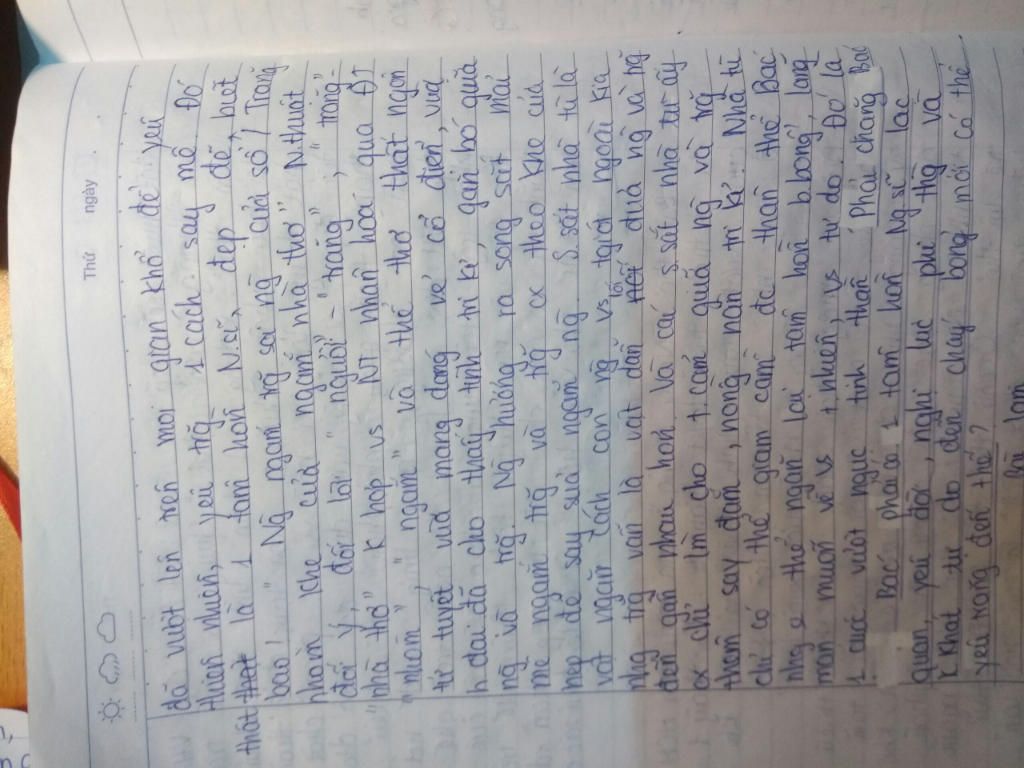 Thứ ngày
đã vượt lên trên mọi gian khổ để yêu
thiên nhiên, yêu trg 1 cách say mê. Đó
thật là 1 tâm hồn N.sĩ, đẹp đẽ, biết
bao! " Ng ngắm trg soi ng cửa sổ / Trăng
nhòm khe cửa ngắm nhà thơ" N thuật
đối ý, đối lời "người" - "trăng", "trăng"-
"nhà thơ" k hợp vs NT nhân hoá qua ĐT
"nhòm", "ngắm" và thể thơ thất ngôn
tứ tuyệt vừa mang dáng vẻ cổ điển, vừa
h đại đã cho thấy tình tri kỉ, gắn bó giữa
ng và trg. Ng hướng ra song sắt mải
mê ngắm trg và trg cx theo khe cửa
hẹp để say sưa ngắm ng. S.sắt nhà tù là
vật ngăn cách con ng vs ngoài kia
nhg trg vẫn là vật dẫn lối đưa ng và trg
đến gần nhau hơn và cái s.sắt nhà tù ấy
cx chỉ làm cho t.cảm giữa ng và trg
thêm say đắm, nồng nàn, tri kỉ. Nhà tù
chỉ có thể giam cầm đc thân thể Bác
nhg o thể ngăn lại tâm hồn b.bổng, lãng
mạn muốn về vs t nhiên, vs tự do. Đó là
1 cuộc vượt ngục tinh thần Phải chăng Bác
Bác phải có 1 tâm hồn Ng sĩ lạc
quan, yêu đời, nghị lực phi thg và
k khát tự do đến cháy bỏng mới có thể
yêu trăng đến thế?